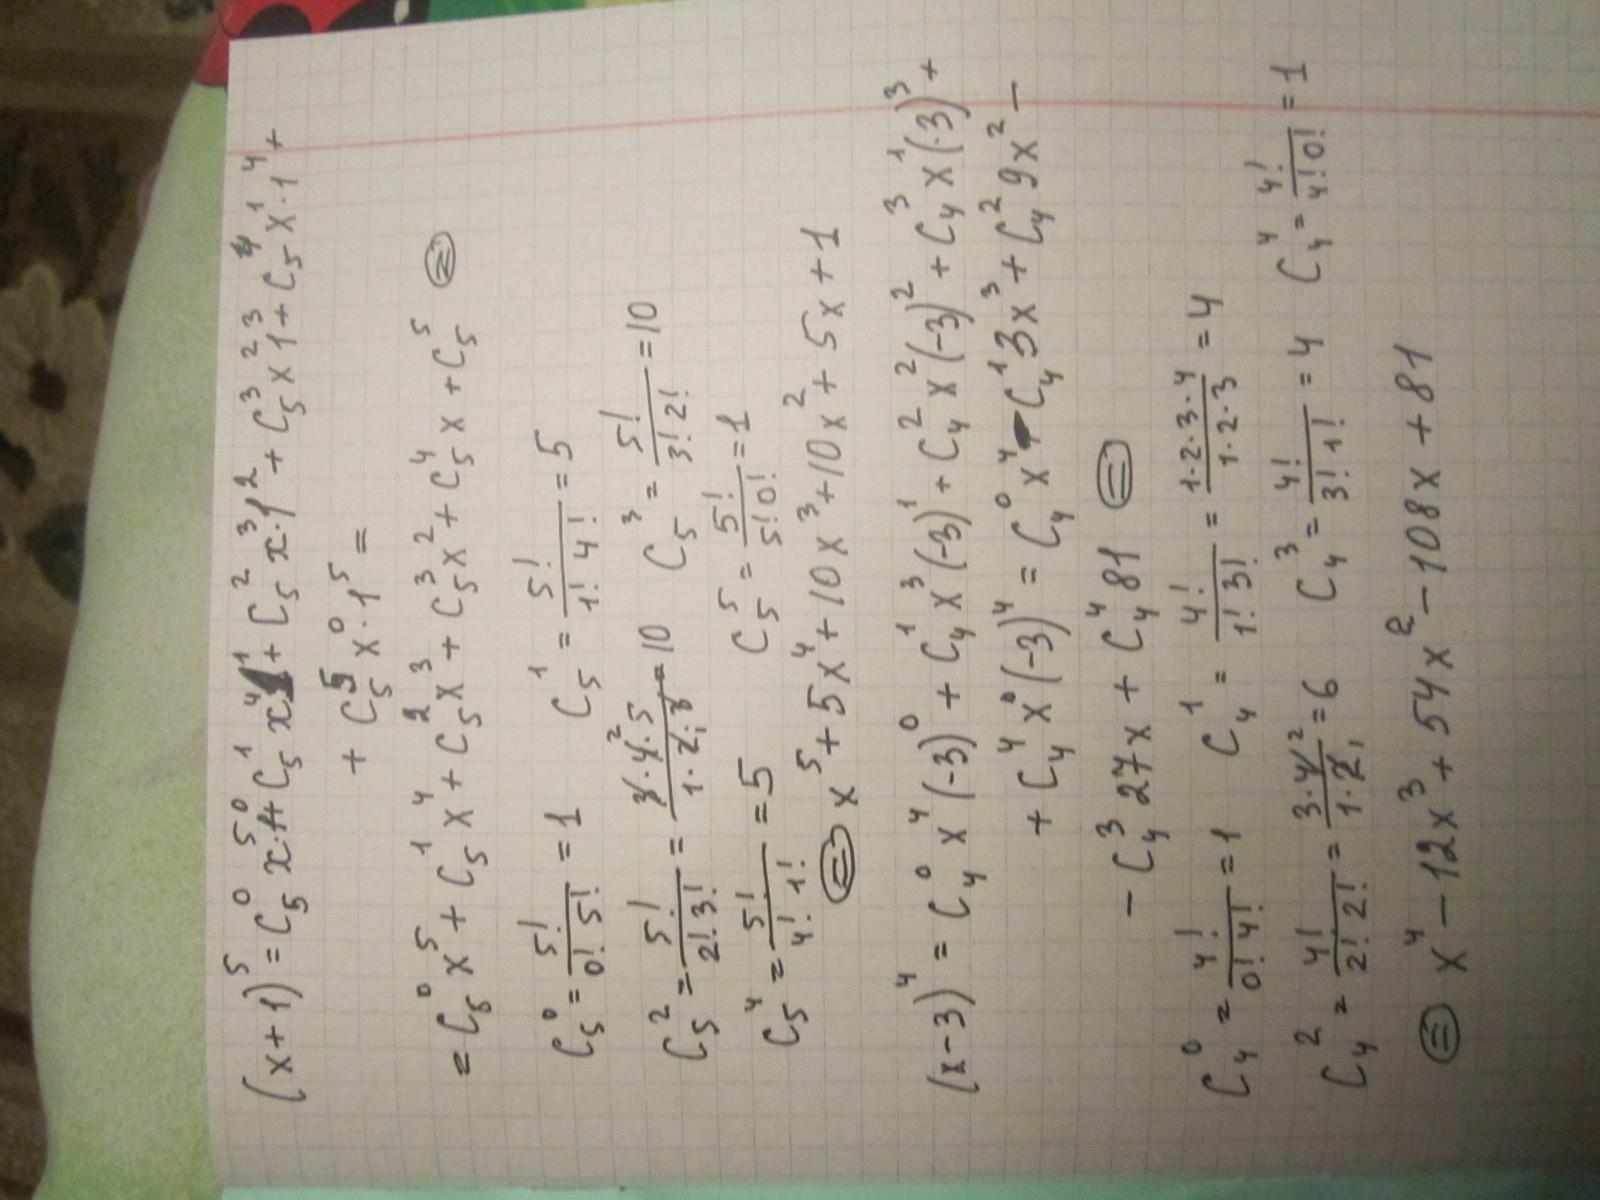 (x+1)⁵ = C₅⁰ x⁵·1⁰ + C₅¹ x⁴·1¹ + C₅² x³·1² + C₅³ x²1³ + C₅⁴ x¹·1⁴ +
+ C₅⁵ x⁰·1⁵ =
= C₅⁰ x⁵ + C₅¹ x⁴ + C₅² x³ + C₅³ x² + C₅⁴ x + C₅⁵ ⊜
C₅⁰ = 5!/(0! 5!) = 1 C₅¹ = 5!/(1! 4!) = 5
C₅² = 5!/(2! 3!) = (3·4²·5)/(1·2·3) = 10 C₅³ = 5!/(3! 2!) = 10
C₅⁴ = 5!/(4! 1!) = 5 C₅⁵ = 5!/(5! 0!) = 1
⊜ x⁵ + 5x⁴ + 10x³ + 10x² + 5x + 1
(x-3)⁴ = C₄⁰ x⁴(-3)⁰ + C₄¹ x³(-3)¹ + C₄² x²(-3)² + C₄³ x¹(-3)³ +
+ C₄⁴ x⁰(-3)⁴ = C₄⁰ x⁴ - C₄¹ 3x³ + C₄² 9x² -
- C₄³ 27x + C₄⁴ 81 ⊜
C₄⁰ = 4!/(0! 4!) = 1 C₄¹ = 4!/(1! 3!) = (1·2·3·4)/(1·2·3) = 4
C₄² = 4!/(2! 2!) = (3·4²)/(1·2₁) = 6 C₄³ = 4!/(3! 1!) = 4 C₄⁴ = 4!/(4! 0!) = 1
⊜ x⁴ - 12x³ + 54x² - 108x + 81